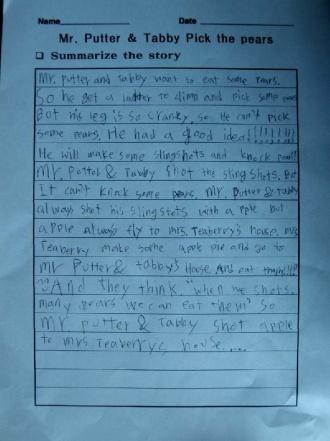 Name Date
Mr. Putter & Tabby Pick the pears
❏ Summarize the story
Mr. Putter and Tabby want to eat some pears.
So he get a ladder to climb and pick some pears
But his leg is so cranky, so. He can't pick
some pears. He had a good idea!!!!!!!
He will make some slingshots and knock pears!
Mr. Potter & Tabby shot the sling shots. But
It can't knock some pears. Mr. Putter & Tabby
always shot his slingstots with apple but
apple always fly to mrs. Teaberry's house. mrs
Teaberry make some apple pie and go to
mr Putter & tabby's House. And eat them!!!!
And they think "when we shots.
many pears we can eat them" So
mr putter & Tabby shot apple
to mrs Teaberry's house....